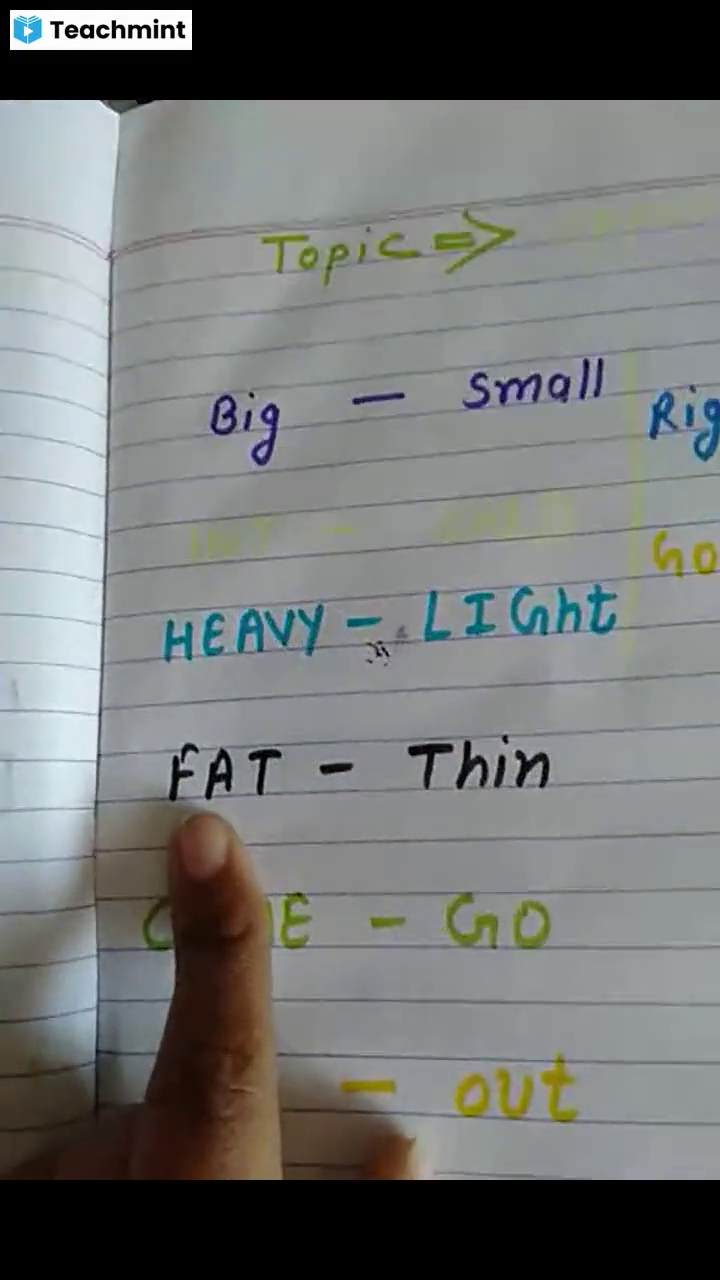 Teachmint
Topic =>
Big — Small
HEAVY - LIGht
FAT - Thin
- GO
- out